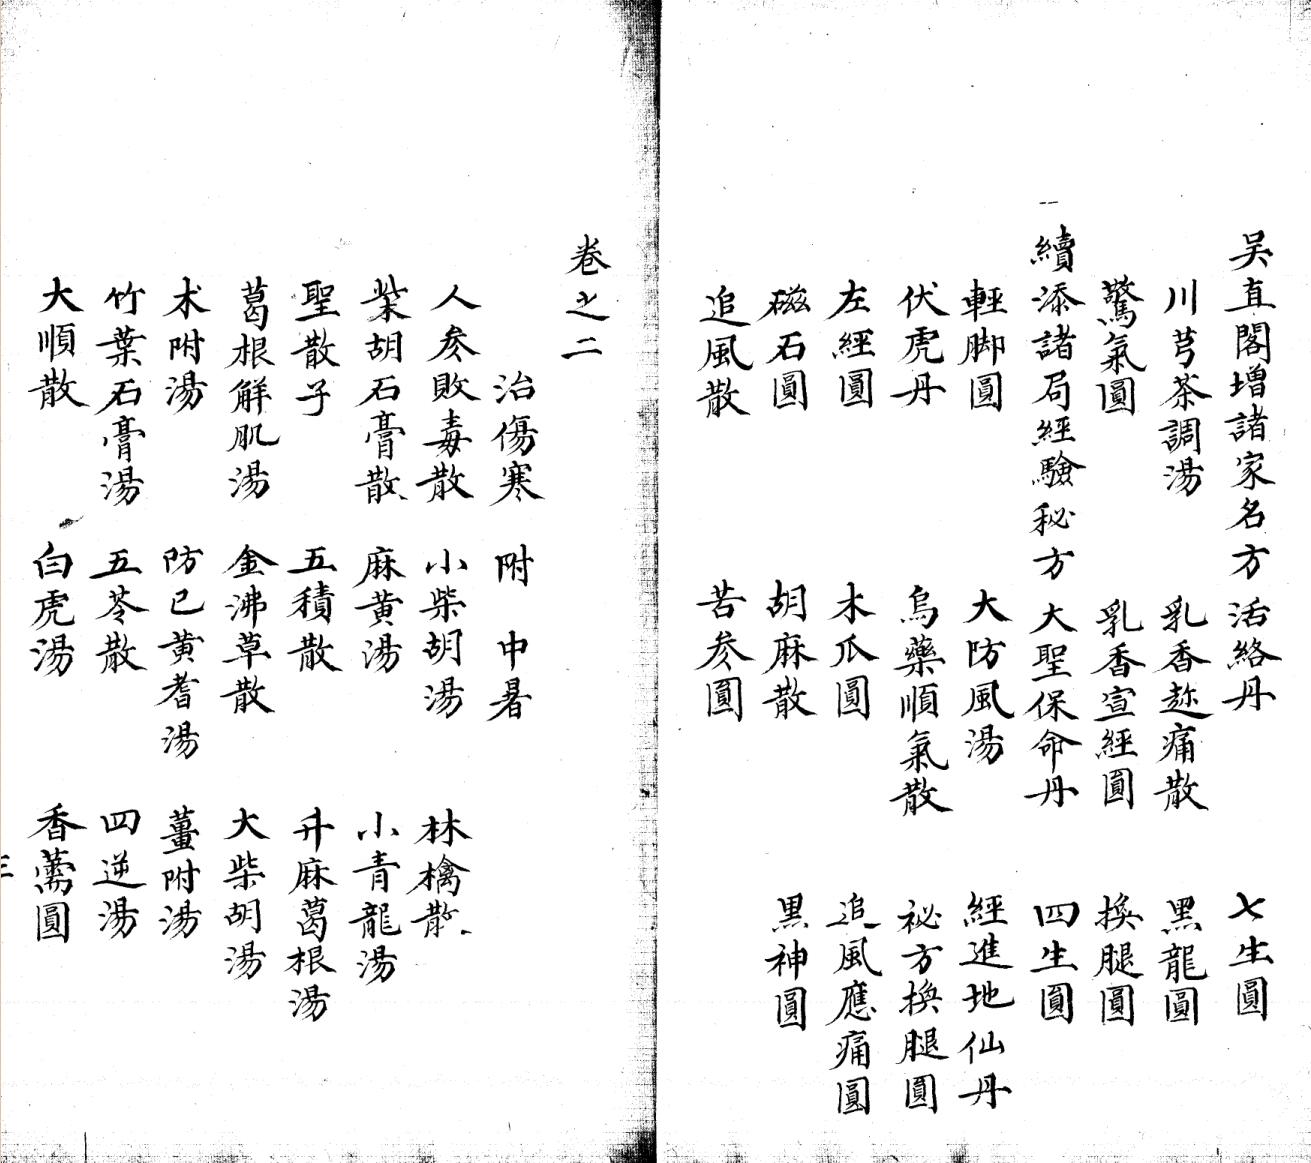 吴直閣增諸家名方 活絡丹 七生圓
川芎茶調湯 乳香趂痛散 黑龍圓
驚氣圓 乳香宣經圓 換腿圓
續添諸局經驗秘方 大聖保命丹 四生圓
輕脚圓 大防風湯 經進地仙丹
伏虎丹 烏藥順氣散 祕方換腿圓
左經圓 木瓜圓 追風應痛圓
磁石圓 胡麻散 黑神圓
追風散 苦参圓
卷之二
治傷寒 附 中暑
人参敗毒散 小柴胡湯 林檎散
柴胡石膏散 麻黃湯 小青龍湯
聖散子 五積散 升麻葛根湯
葛根解肌湯 金沸草散 大柴胡湯
术附湯 防己黃耆湯 薑附湯
竹葉石膏湯 五苓散 四逆湯
大順散 白虎湯 香薷圓
三